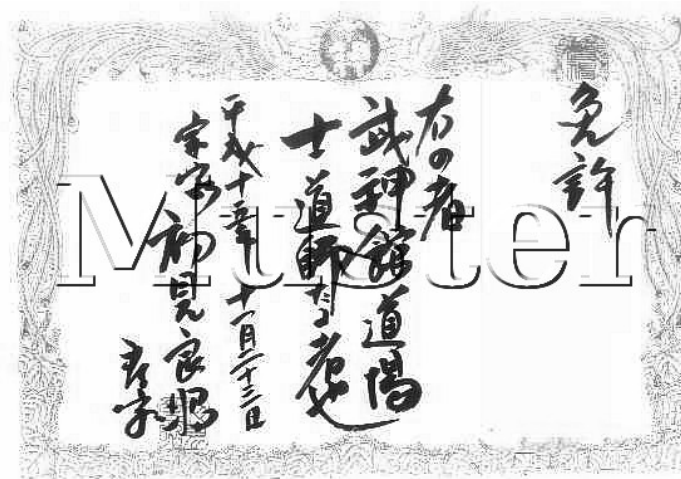 免許
右の者
武神館道場
士道師たる者也
平成十五年十一月二十三日
宗家初見良昭
Muster